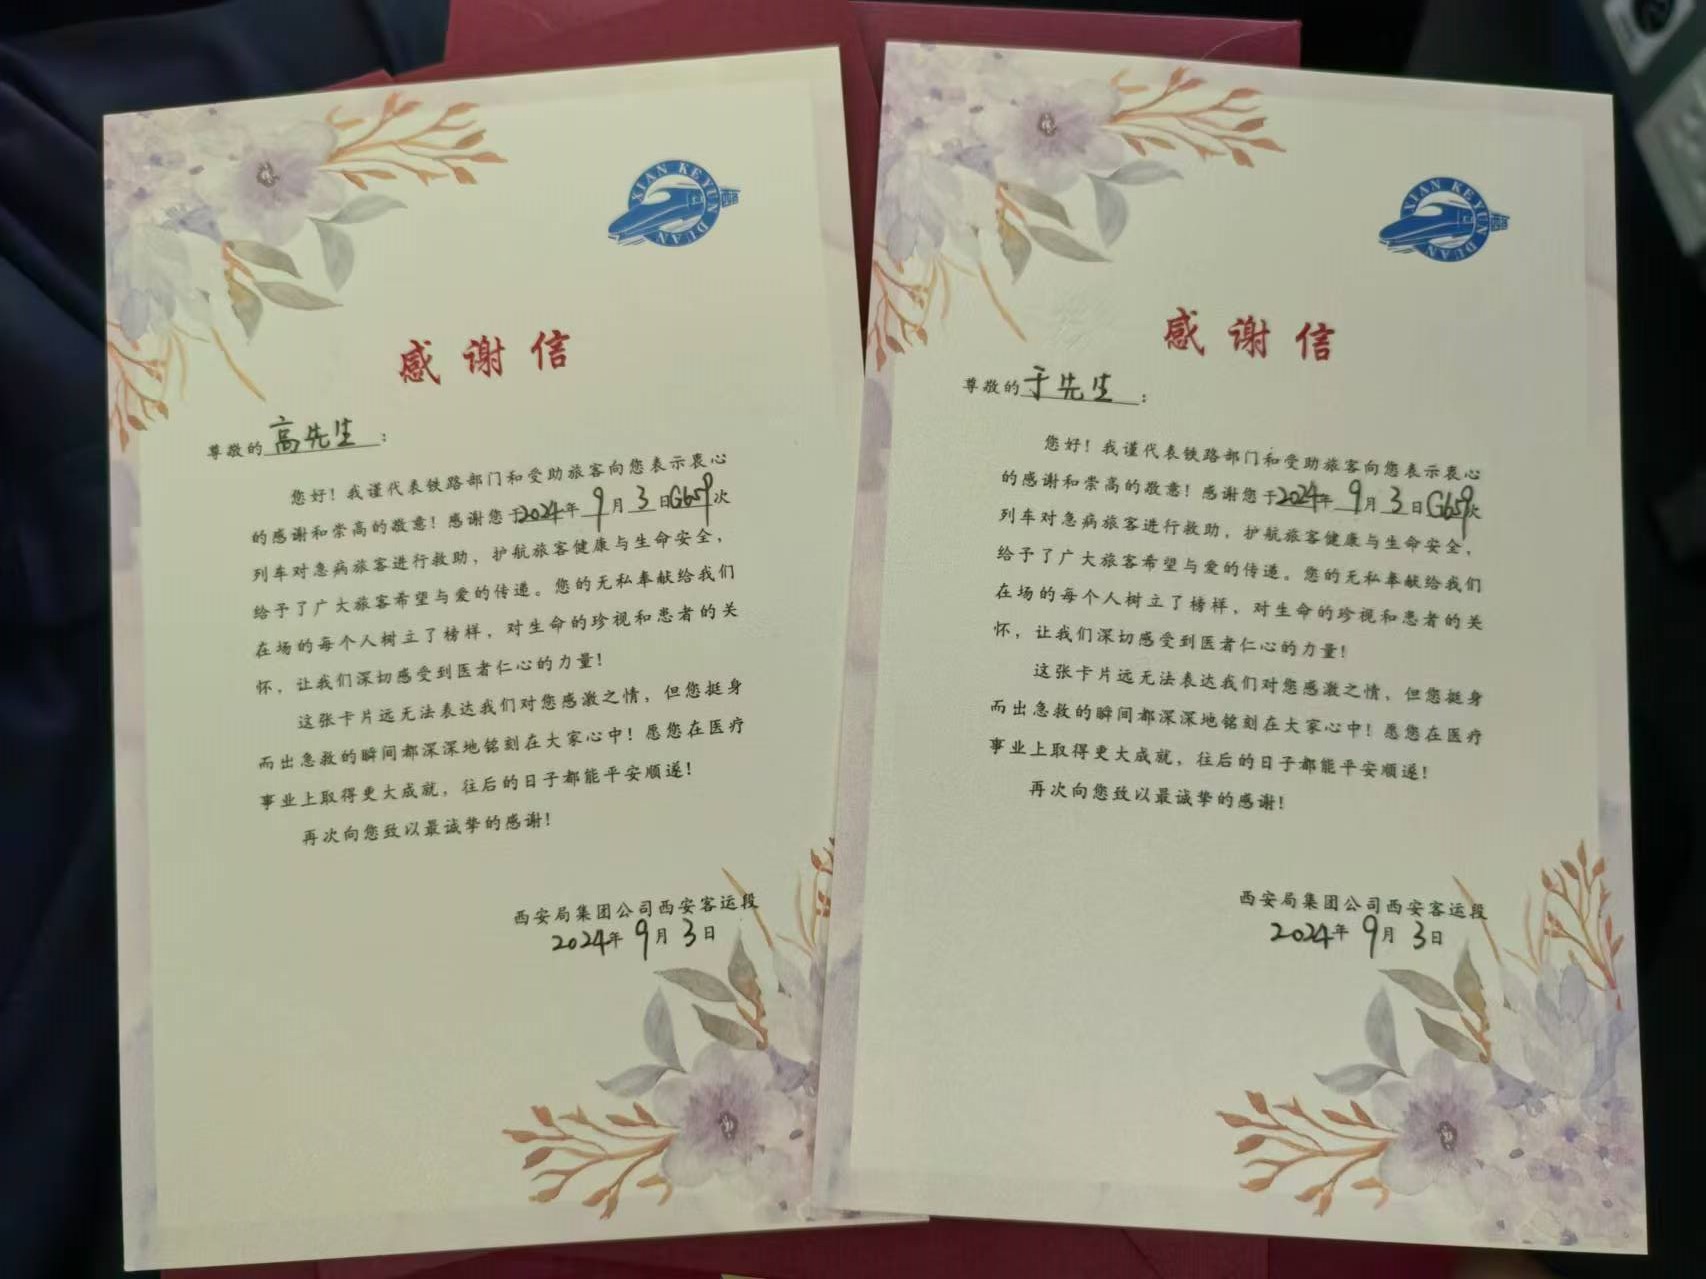 XIAN KEYUN DUAN
感谢信
尊敬的高先生：
您好！我谨代表铁路部门和受助旅客向您表示衷心
的感谢和崇高的敬意！感谢您于2024年9月3日G659次
列车对急病旅客进行救助，护航旅客健康与生命安全，
给予了广大旅客希望与爱的传递。您的无私奉献给我们
在场的每个人树立了榜样，对生命的珍视和患者的关
怀，让我们深切感受到医者仁心的力量！
这张卡片远无法表达我们对您感激之情，但您挺身
而出急救的瞬间都深深地铭刻在大家心中！愿您在医疗
事业上取得更大成就，往后的日子都能平安顺遂！
再次向您致以最诚挚的感谢！
西安局集团公司西安客运段
2024年9月3日
XIAN KEYUN DUAN
感谢信
尊敬的于先生：
您好！我谨代表铁路部门和受助旅客向您表示衷心
的感谢和崇高的敬意！感谢您于2024年9月3日G659次
列车对急病旅客进行救助，护航旅客健康与生命安全，
给予了广大旅客希望与爱的传递。您的无私奉献给我们
在场的每个人树立了榜样，对生命的珍视和患者的关
怀，让我们深切感受到医者仁心的力量！
这张卡片远无法表达我们对您感激之情，但您挺身
而出急救的瞬间都深深地铭刻在大家心中！愿您在医疗
事业上取得更大成就，往后的日子都能平安顺遂！
再次向您致以最诚挚的感谢！
西安局集团公司西安客运段
2024年9月3日